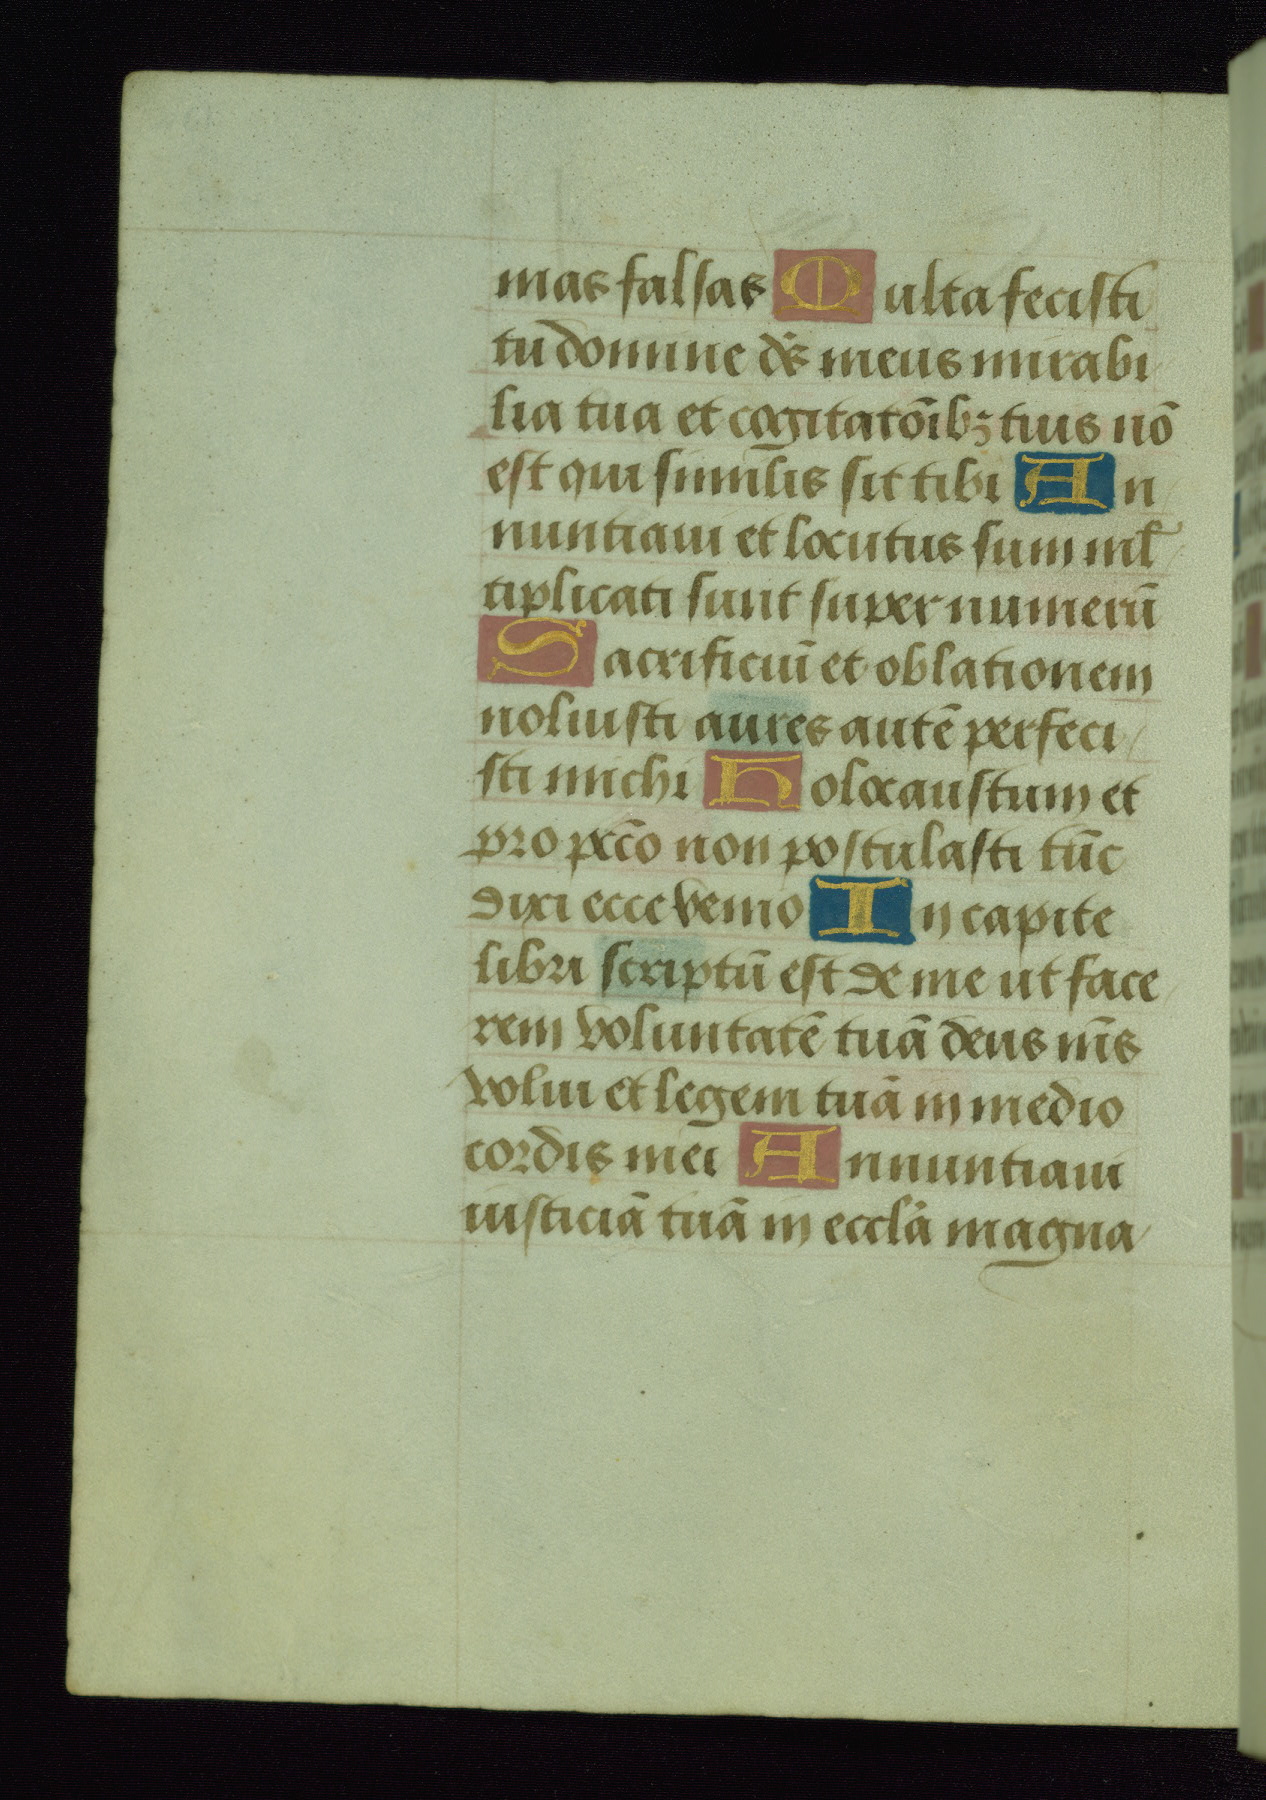 mas falsas Multa fecisti
tu domine ds̄ meus mirabi
lia tua et cogitatōibꝫ tuis nō
est qui similis sit tibi An
nuntiaui et locutus sum ml̄
tiplicati sunt super numerū
Sacrificiū et oblationem
noluisti aures autē perfeci
sti michi Holocaustum et
pro pctō non postulasti tūc
dixi ecce venio In capite
libri scriptū est de me ut face
rem voluntatē tuā deus mēs
volui et legem tuā in medio
cordis mei Annuntiaui
iusticiā tuā in ecclā magna